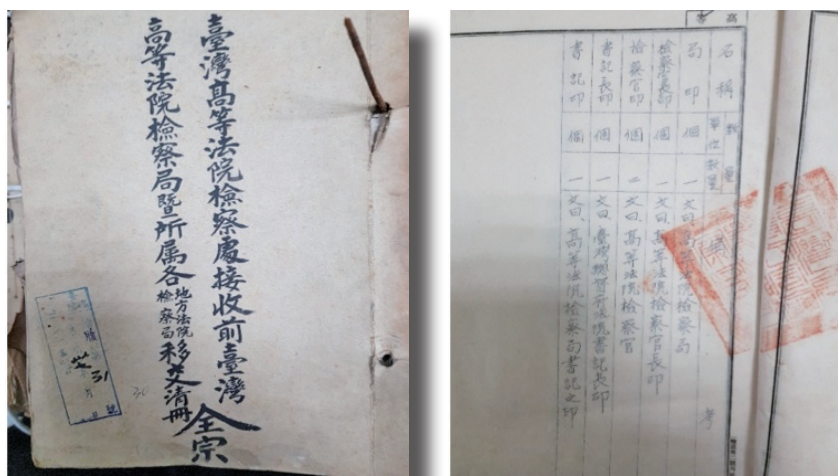 臺灣高等法院檢察處接收前臺灣
高等法院檢察局暨所属各地方法院檢察局移交清冊
全宗
31
30
名稱
數量
單位數量
備考
局印 個 一 文曰、高等法院檢察局
檢察長印 個 一 文曰、高等法院檢察官長印
檢察官印 個 二 文曰、高等法院檢察官
書記長印 個 一 文曰、臺灣總督府法院書記長印
書記印 個 一 文曰、高等法院檢察局書記之印